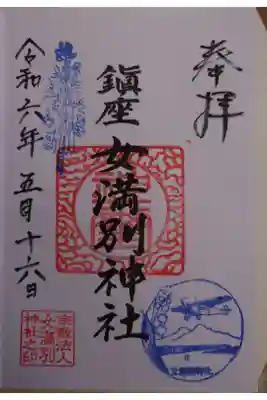 奉拝
鎮座 女満別神社
令和六年 五月十六日
宗教法人
女満別
神社之印